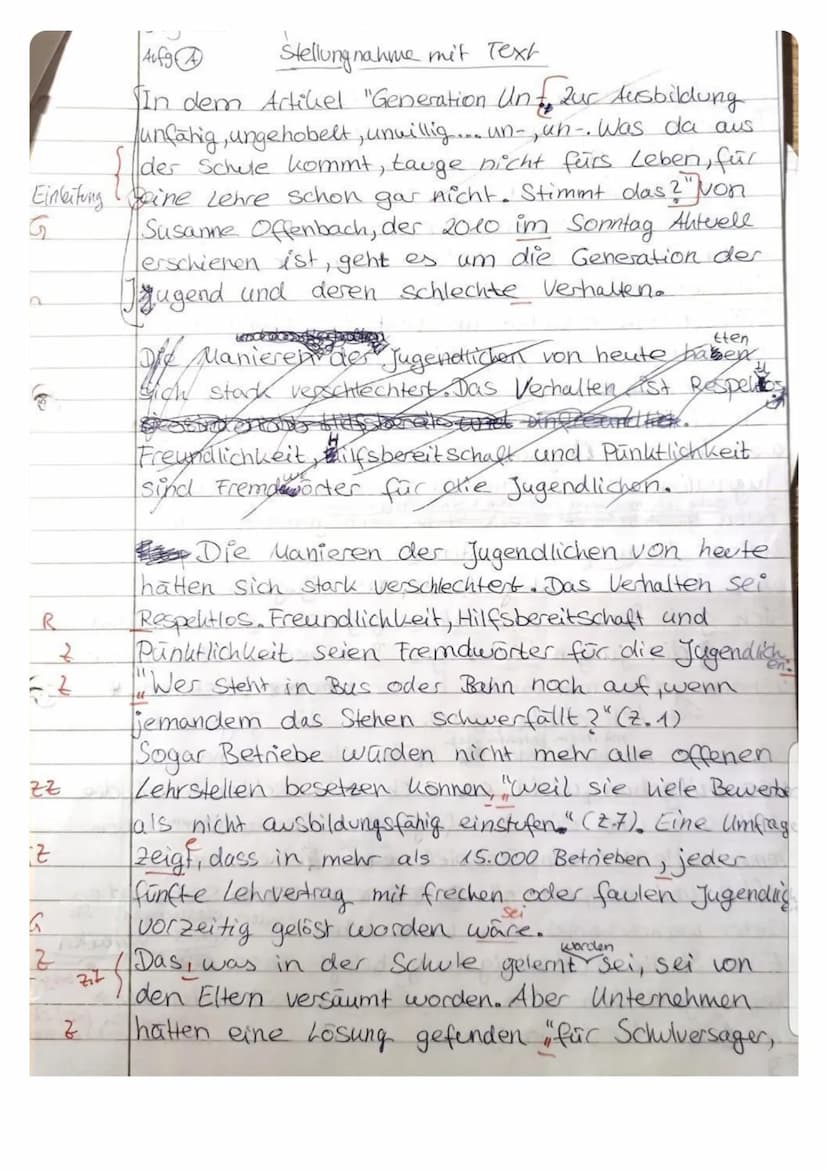 Aufg A Stellungnahme mit Text
In dem Artikel "Generation Un-, Zur Ausbildung
unfähig, ungehobelt, unwillig... un-, un-. Was da aus
der Schule kommt, tauge nicht fürs Leben, für
eine Lehre schon gar nicht. Stimmt das?" von
Einleitung
G
Susanne Offenbach, der 2010 im Sonntag Aktuell
erschienen ist, geht es um die Generation der
Jugend und deren schlechte Verhalten.
Die Manieren der Jugendlichen von heute hätten
sich stark verschlechtert. Das Verhalten ist Respektlos
Freundlichkeit, Hilfsbereitschaft und Pünktlichkeit
sind Fremdwörter für die Jugendlichen.
Die Manieren der Jugendlichen von heute
hätten sich stark verschlechtert. Das Verhalten sei
R Respektlos. Freundlichkeit, Hilfsbereitschaft und
Z Pünktlichkeit seien Fremdwörter für die Jugendlichen.
Z "Wer steht in Bus oder Bahn noch auf, wenn
jemandem das Stehen schwerfällt?" (Z.1)
Sogar Betriebe würden nicht mehr alle offenen
ZZ Lehrstellen besetzen können, "weil sie viele Bewerbe
als nicht ausbildungsfähig einstufen." (Z.7). Eine Umfrag
Z zeigt, dass in mehr als 15.000 Betrieben, jeder
e
fünfte Lehrvertrag mit frechen oder faulen Jugendlic
G vorzeitig gelöst worden wäre.
sei
Z Das, was in der Schule gelernt worden sei, sei von
ZiT den Eltern versäumt worden. Aber Unternehmen
Z hätten eine Lösung gefunden "für Schulversager,